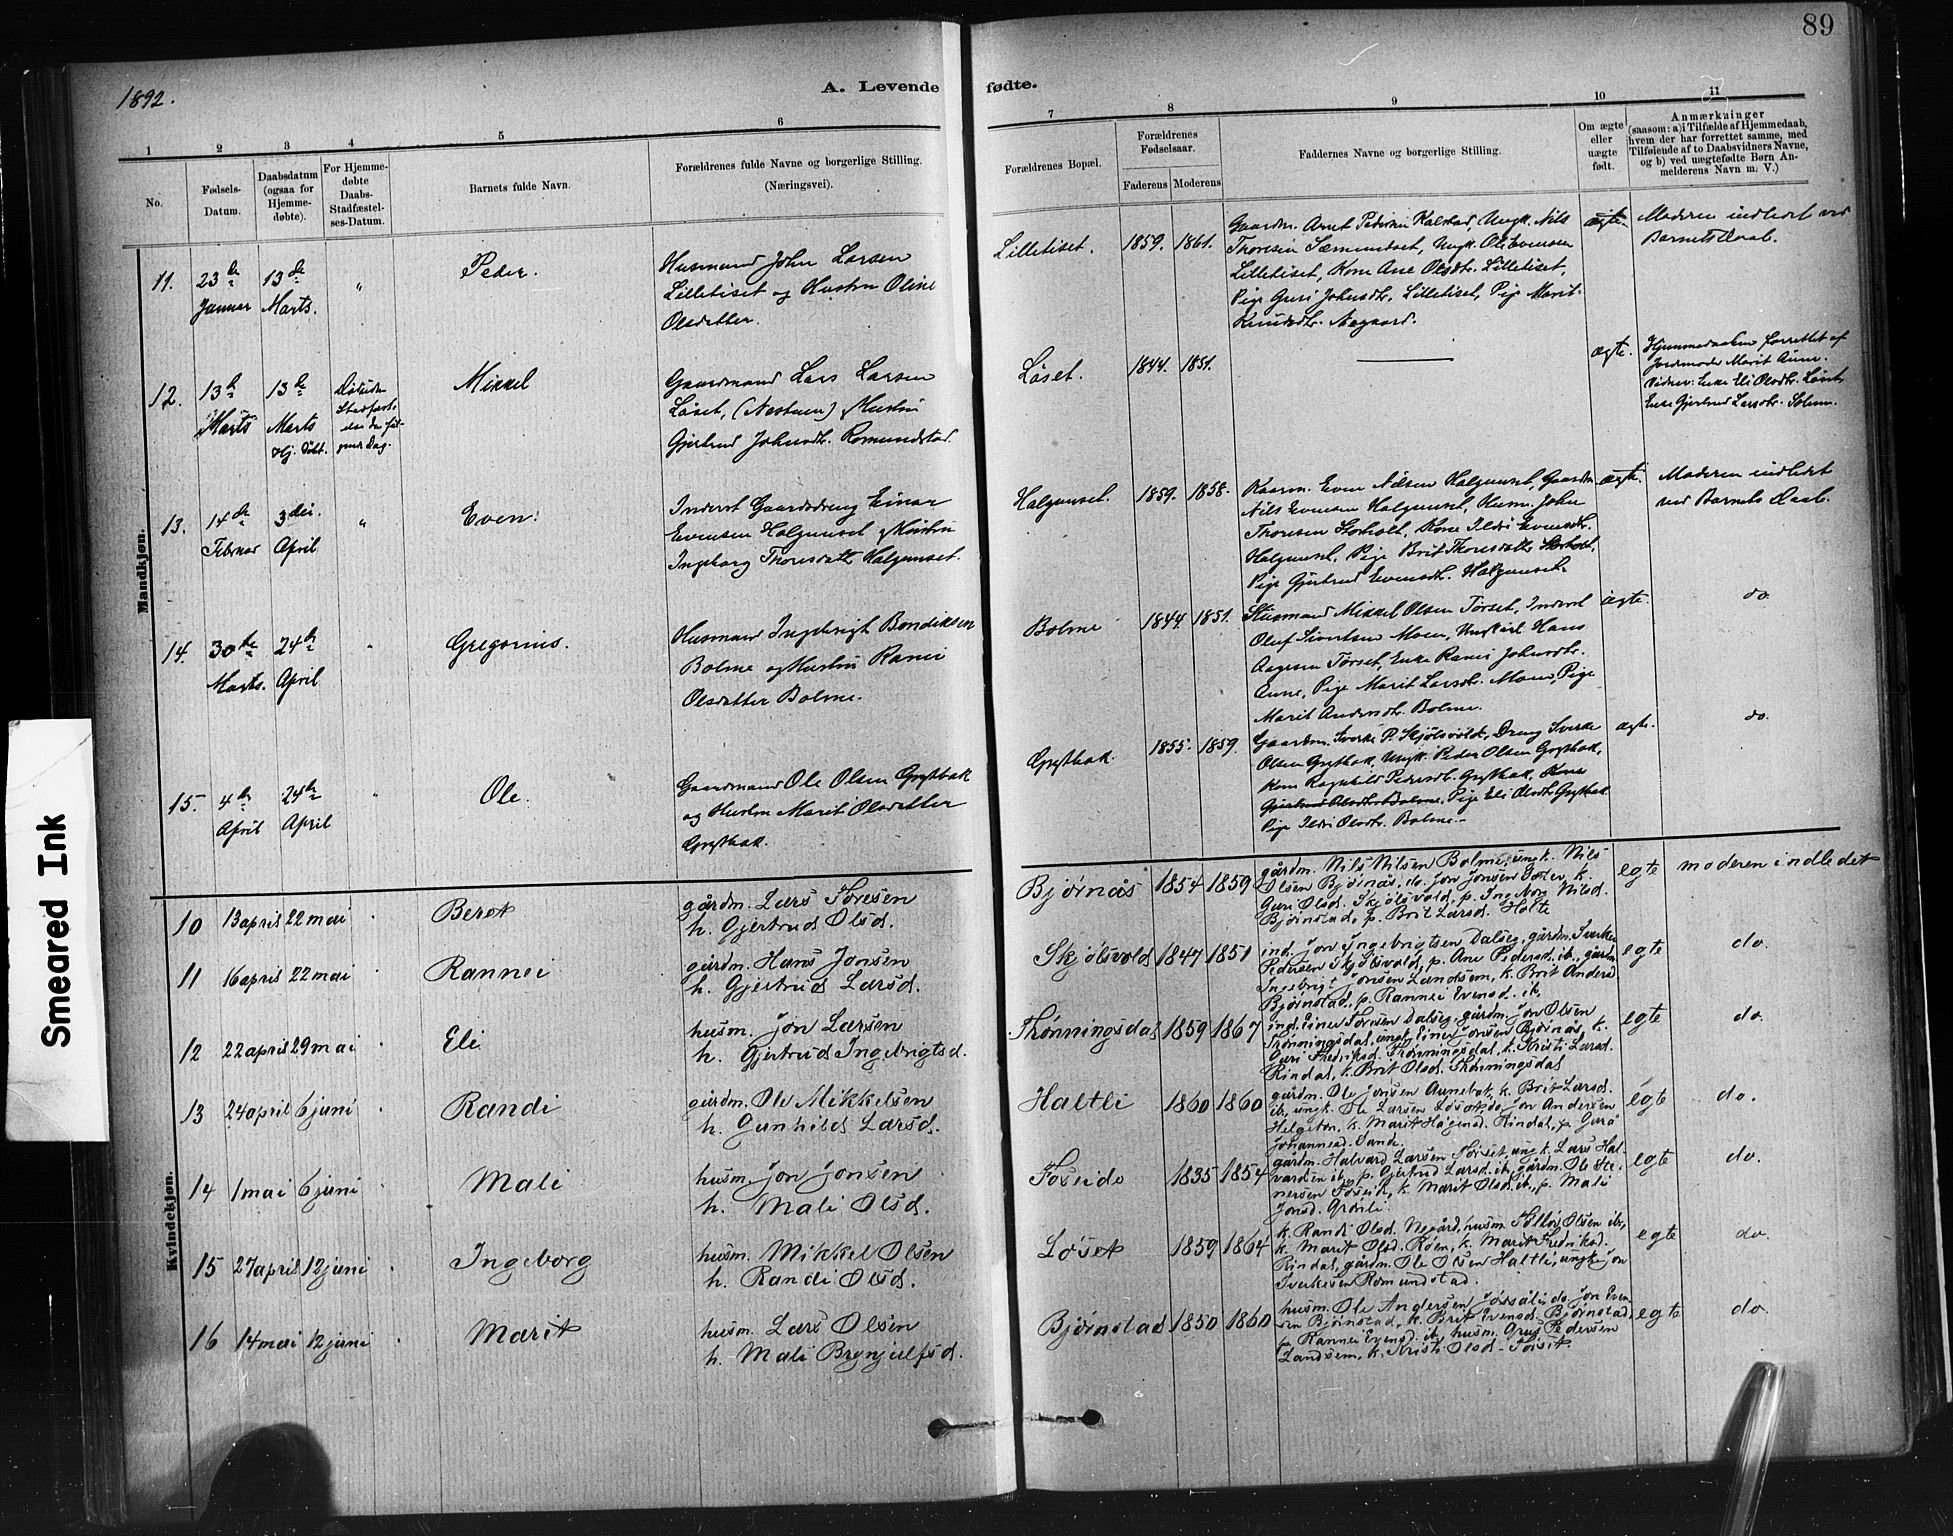 89
1892.
A. Levende fødte.
1 2 3 4 5 6 7 8 9 10 11
No.
Fødsels-
Datum.
Daabsdatum
(ogsaa for
Hjemme-
døbte).
For Hjemme-
døbte
Daabs-
Stadfæstel-
ses-Datum.
Barnets fulde Navn.
Forældrenes fulde Navne og borgerlige Stilling.
(Næringsvei).
Forældrenes Bopæl.
Forældrenes
Fødselsaar.
Faderens Moderens
Faddernes Navne og borgerlige Stilling.
Om ægte
eller
uægte
født.
Anmærkninger
(saasom: a) i Tilfælde af Hjemmedaab,
hvem der har forrettet samme, med
Tilføiende af to Daabsvidners Navne,
og b) ved uægtefødte Børn An-
melderens Navn m. V.)
Mandkjøn.
11. 23de Januar 13de Marts. " Peder.
Husmand John Larsen
Lilletiset og Hustru Oline
Olsdatter.
Lilletiset. 1859. 1861.
Gaardm. Arnt Pedersen Kalstad, Ungk. Nils
Thoresen Sæmundset, Ungk. Ole Evensen
Lilletiset, Kone Ane Olsdtr. Lilletiset,
Pige Guri Johnsdtr. Lilletiset, Pige Marit
Knudsdtr. Aagaard.
ægte.
Moderen indledet ved
Barnets Daab.
12. 13de Marts 13de Marts Hj. døbt.
Mikkel
Gaardmand Lars Larsen
Løset, (Nestuen) & Hustru
Gjertrud Johnsdtr. Romundstad.
Løset. 1844. 1851.
ægte.
Hjemmedaaben forrettet af
Jordmoder Marit Aune.
Vidner: Enke Eli Olsdtr. Løset,
Enke Gjertrud Larsdtr. Solem.
13. 14de Februar 3die April " Even.
Inderst Gaardsdreng Einar
Evensen Halgunset & Hustru
Ingeborg Thoresdatter Halgunset.
Halgunset. 1859. 1858.
Kaarm. Even Nilsen Halgunset, Gaardm.
Nils Evensen Halgunset, Husm. John
Thoresen Storholt, Kone Ildri Evensdtr.
Halgunset, Pige Brit Thoresdatter Storholt,
Pige Gjertrud Evensdtr. Halgunset.
ægte.
Moderen indledet
ved Barnets Daab.
14. 30te Marts. 24de April " Gregorius.
Husmand Ingebrigt Bendiksen
Bolme og Hustru Ranei
Olsdatter Bolme.
Bolme 1844. 1851.
Husmand Mikkel Olsen Tørset, Inderst
Oluf Simensen Moen, Ungkarl Hans
Aagesen Tørset, Enke Ranei Johnsdtr.
Aune, Pige Marit Larsdtr. Moen, Pige
Marit Andersdtr. Bolme.
ægte. do.
15. 4de April 24de April " Ole.
Gaardmand Ole Olsen Grytbak
og Hustru Marit Olsdatter
Grytbak.
Grytbak. 1855. 1859.
Gaardm. Sverke P. Skjølsvold, Dreng Sverke
Olsen Grytbak, Ungk. Peder Olsen Grytbak,
Kone Ragnhild Pedersdtr. Grytbak, Kone
Gjertrud Olsdtr. Bolme, Pige Eli Olsdtr. Grytbak
Pige Ildri Olsdtr. Bolme.
ægte. do.
Kvindekjøn.
10 13 april 22 mai " Beret
gårdm. Lars Toresen
h. Gjertrud Olsd.
Bjørnås 1854 1859
gårdm. Nils Nilsen Bolme, ungk. Nils
Olsen Bjørnås, do. Jon Jonsen, k.
Guri Olsd. Skjølsvold, p. Ingebor Nilsd.
Bjørnstad, p. Brit Larsd. Holte
egte moderen indledet
11 16 april 22 mai " Rannei
gårdm. Hans Jonsen
h. Gjertrud Larsd.
Skjølsvold 1847 1851
ind. Jon Ingebrigtsen Dalseg, gårdm. Sverke
Pedersen Skjølsvold, p. Ane Pedersd. ib., gårdm.
Ingebrigt Jonsen Landsem, k. Brit Andersd.
Bjørnstad, p. Rannei Evensd. ib.
egte do.
12 22 april 29 mai " Eli
husm. Jon Larsen
h. Gjertrud Ingebrigtsd.
Thønningsdal 1859 1867
ind. Einer Toresen Dalseg, gårdm. Jon Olsen
Trønningsdal, ungk. Einer Jonsen Bjørnås, k.
Guri Fredriksd. Trønningsdal, k. Kristi Larsd.
Rindal, k. Brit Olsd. Thønningsdal
egte do.
13 24 april 6 juni Randi
gårdm. Ole Mikkelsen
h. Gunhild Larsd.
Haltli 1860 1860
gårdm. Ole Jonsen Aunebak, k. Brit Larsd.
ib., ungk. Ole Larsen Løset, do. Jon Andersen
Helgeton, k. Marit Hågensd. Rindal, p. Gurå
Johannesd. Sande.
egte do.
14 1 mai 6 juni Mali
husm. Jon Jonsen
h. Mali Olsd.
Foseide 1835 1854
gårdm. Halvard Larsen Tørset, ungk. Lars Hal-
vardsen ib., p. Gjertrud Larsd. ib., gårdm. Ole Ste-
nersen Foseid, k. Marit Olsd. ib., p. Mali
Jonsd. Grønli.
egte do.
15 27 april 12 juni " Ingeborg
husm. Mikkel Olsen
h. Randi Olsd.
Løset 1859 1864
k. Randi Olsd. Negård, husm. Tollev Olsen ib.,
k. Marit Olsd. Røen, k. Marit Fredriksd.
Rindal, gårdm. Ole Olsen Haltli, ungk. Jon
Sverkesen Romundstad.
egte do.
16 14 mai 12 juni " Marit
husm. Lars Olsen
h. Mali Brynjulfsd.
Bjørnstad 1850 1860
husm. Ole Andersen Jøssåli, do. Jon Even-
sen Bjørnstad, k. Brit Evensd. Bjørnstad,
p. Rannei Evensd. ib., husm. Pedersen
Landsem, k. Kristi Olsd. Tørset.
egte do.
Smeared Ink